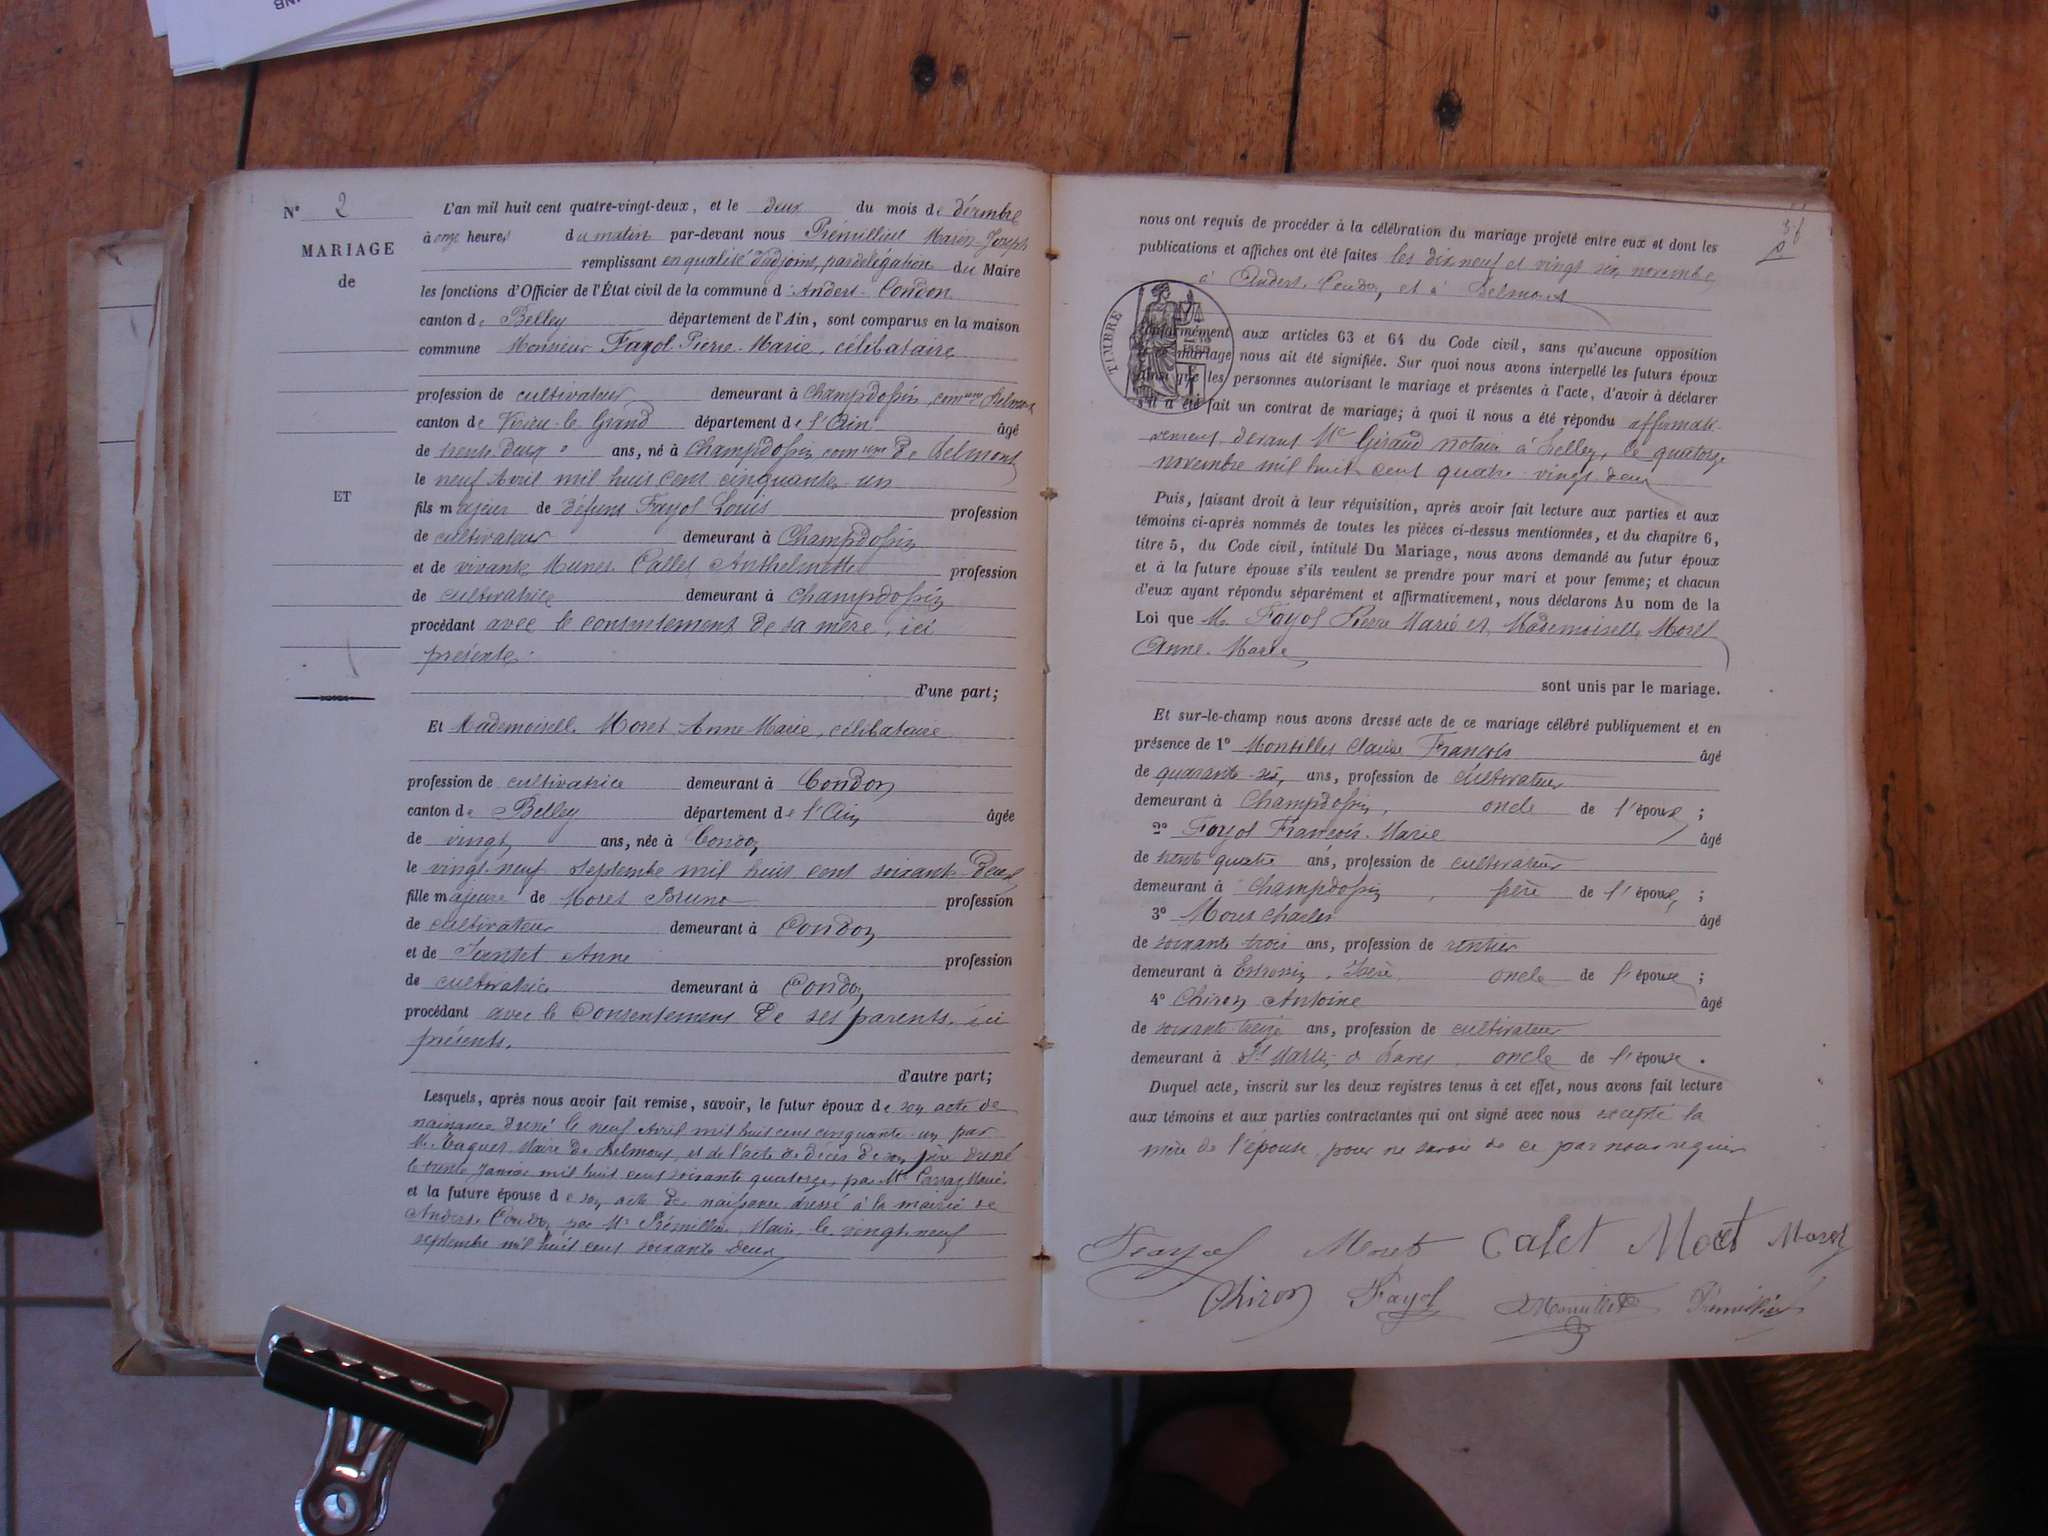 N° 2
MARIAGE
de
ET
L'an mil huit cent quatre-vingt-deux, et le deux du mois de décembre
à onze heures du matin par-devant nous Prémillieu Marin Joseph
remplissant en qualité d'adjoint, par délégation du Maire
les fonctions d'Officier de l'État civil de la commune d'Andert-Condon
canton de Belley département de l'Ain, sont comparus en la maison
commune Monsieur Fayol Pierre-Marie, célibataire
profession de cultivateur demeurant à Champdossin, comune Belmont
canton de Virieu-le Grand département de l'Ain âgé
de trente deux ans, né à Champdossin comune de Belmont
le neuf Avril mil huit cent cinquante un
fils majeur de défunt Fayol Louis profession
de cultivateur demeurant à Champdossin
et de vivante Callet Anthelmette profession
de cultivatrice demeurant à Champdossin
procédant avec le consentement de sa mère, ici
présente.
d'une part;
Et Mademoiselle Moret Anne Marie, célibataire
profession de cultivatrice demeurant à Condon
canton de Belley département de l'Ain âgée
de vingt ans, née à Condon
le vingt-neuf septembre mil huit cent soixante-deux
fille majeure de Moret Bruno profession
de cultivateur demeurant à Condon
et de Anne profession
de cultivatrice demeurant à Condon
procédant avec le Consentement de ses parents, ici
présents.
d'autre part;
Lesquels, après nous avoir fait remise, savoir, le futur époux de son acte de
naissance dressé le neuf Avril mil huit cent cinquante-un par
M. Maire de Belmont, et de l'acte de décès de son père dressé
le trente Janvier mil huit cent soixante quatorze, par Mr Carraz Maire
et la future épouse de son acte de naissance dressé à la mairie de
Andert-Condon par Mr Prémillieu, Maire le vingt-neuf
septembre mil huit cent soixante deux
nous ont requis de procéder à la célébration du mariage projeté entre eux et dont les
publications et affiches ont été faites les dix neuf et vingt six novembre
à Andert-Condon, et à Belmont
TIMBRE
conformément aux articles 63 et 64 du Code civil, sans qu'aucune opposition
mariage nous ait été signifiée. Sur quoi nous avons interpellé les futurs époux
ainsi que les personnes autorisant le mariage et présentes à l'acte, d'avoir à déclarer
s'il a été fait un contrat de mariage; à quoi il nous a été répondu affirmati-
vement, devant Me Giraud notaire à Belley, le quatorze
novembre mil huit cent quatre-vingt deux
Puis, faisant droit à leur réquisition, après avoir fait lecture aux parties et aux
témoins ci-après nommés de toutes les pièces ci-dessus mentionnées, et du chapitre 6,
titre 5, du Code civil, intitulé Du Mariage, nous avons demandé au futur époux
et à la future épouse s'ils veulent se prendre pour mari et pour femme; et chacun
d'eux ayant répondu séparément et affirmativement, nous déclarons Au nom de la
Loi que Mr Fayol Pierre Marie et Mademoiselle Moret
Anne-Marie
sont unis par le mariage.
Et sur-le-champ nous avons dressé acte de ce mariage célébré publiquement et en
présence de 1° Claude François âgé
de quarante-six ans, profession de cultivateur
demeurant à Champdossin, oncle de l'époux;
2° Fayol François-Marie âgé
de trente quatre ans, profession de cultivateur
demeurant à Champdossin, frère de l'époux;
3° Moret Charles âgé
de soixante trois ans, profession de rentier
demeurant à Isère oncle de l'épouse;
4° Chiron Antoine âgé
de soixante treize ans, profession de cultivateur
demeurant à St Martin de Bavel, oncle de l'épouse.
Duquel acte, inscrit sur les deux registres tenus à cet effet, nous avons fait lecture
aux témoins et aux parties contractantes qui ont signé avec nous excepté la
mère de l'épouse, pour ne savoir de ce par nous requise
Fayol Moret Calet Moret Moret
Chiron Fayol Prémillieu